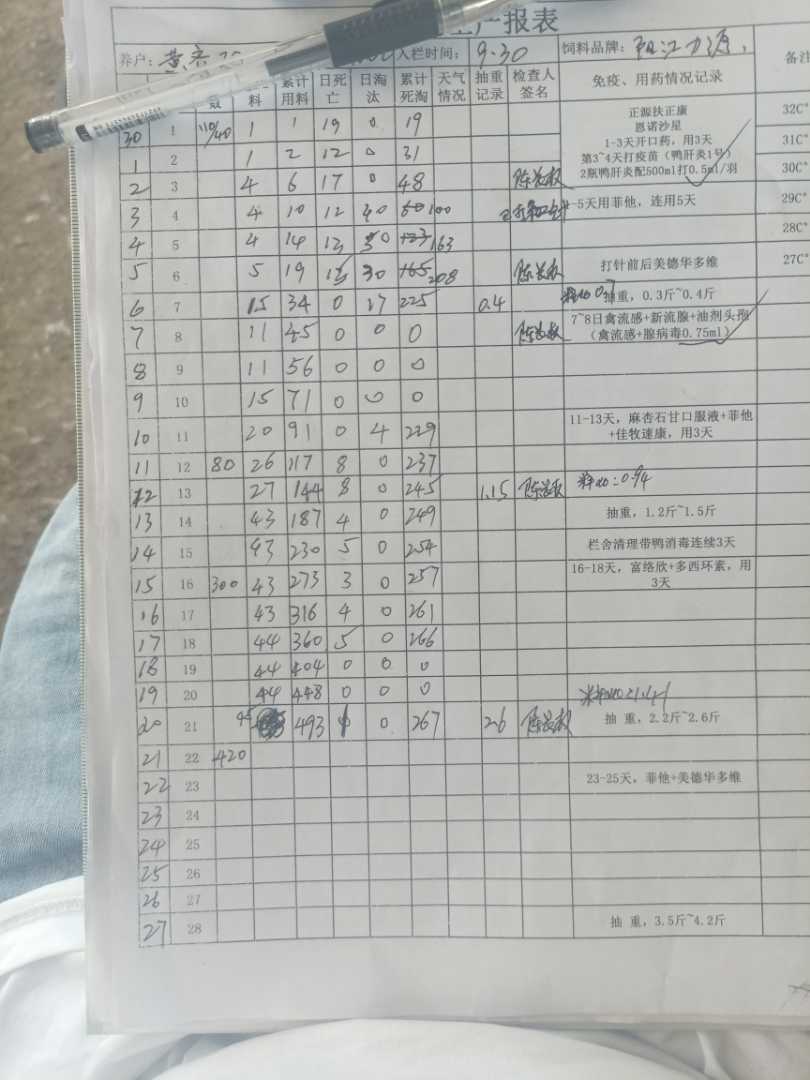 产报表
养户： 入栏时间： 9.30 饲料品牌： 阳江力源
数 料 累计用料 日死亡 日淘汰 累计死淘 天气情况 抽重记录 检查人签名 免疫、用药情况记录 备注
30 1 110/40 1 1 19 0 19 正源扶正康 32C°
恩诺沙星
1-3天开口药，用3天
1 2 1 2 12 0 31 第3~4天打疫苗（鸭肝炎1号） 31C°
2 3 4 6 17 0 48 2瓶鸭肝炎配500ml打0.5ml/羽 30C°
3 4 4 10 12 40 100 -5天用菲他，连用5天 29C°
4 5 4 14 13 50 163 28C°
5 6 5 19 15 30 208 打针前后美德华多维 27C°
6 7 15 34 0 17 225 0.4 抽重，0.3斤~0.4斤
7 8 11 45 0 0 0 7~8日禽流感+新流腺+油剂头孢
（禽流感+腺病毒0.75ml）
8 9 11 56 0 0 0
9 10 15 71 0 0 0
10 11 20 91 0 4 229 11-13天，麻杏石甘口服液+菲他
+佳牧速康，用3天
11 12 80 26 117 8 0 237
12 13 27 144 8 0 245 1.15 料肉：0.94
13 14 43 187 4 0 249 抽重，1.2斤~1.5斤
14 15 43 230 5 0 254 栏舍清理带鸭消毒连续3天
15 16 300 43 273 3 0 257 16-18天，富络欣+多西环素，用
3天
16 17 43 316 4 0 261
17 18 44 360 5 0 266
18 19 44 404 0 0 0
19 20 44 448 0 0 0
20 21 45 493 1 0 267 2.6 抽 重，2.2斤~2.6斤
21 22 420
22 23 23-25天，菲他+美德华多维
23 24
24 25
25 26
26 27
27 28 抽 重，3.5斤~4.2斤